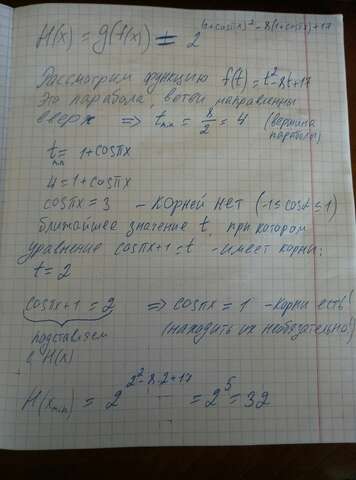 H(x) = g(f(x)) = 2^((1+cosπx)²-8(1+cosπx)+17)
Рассмотрим функцию f(t)=t²-8t+17
Это парабола, ветви направленны
вверх => t = 8/2 = 4 (вершина
параболы)
t = 1+cosπx
4=1+cosπx
cosπx=3 - корней нет (-1≤cosα≤1)
ближайшее значение t, при котором
уравнение cosπx+1=t - имеет корни:
t=2
cosπx+1=2 => cosπx=1 - корни есть!
подставляем (находить их необязательно!)
в H(x)
H(xmin) = 2^(2²-8·2+17) = 2^5 = 32